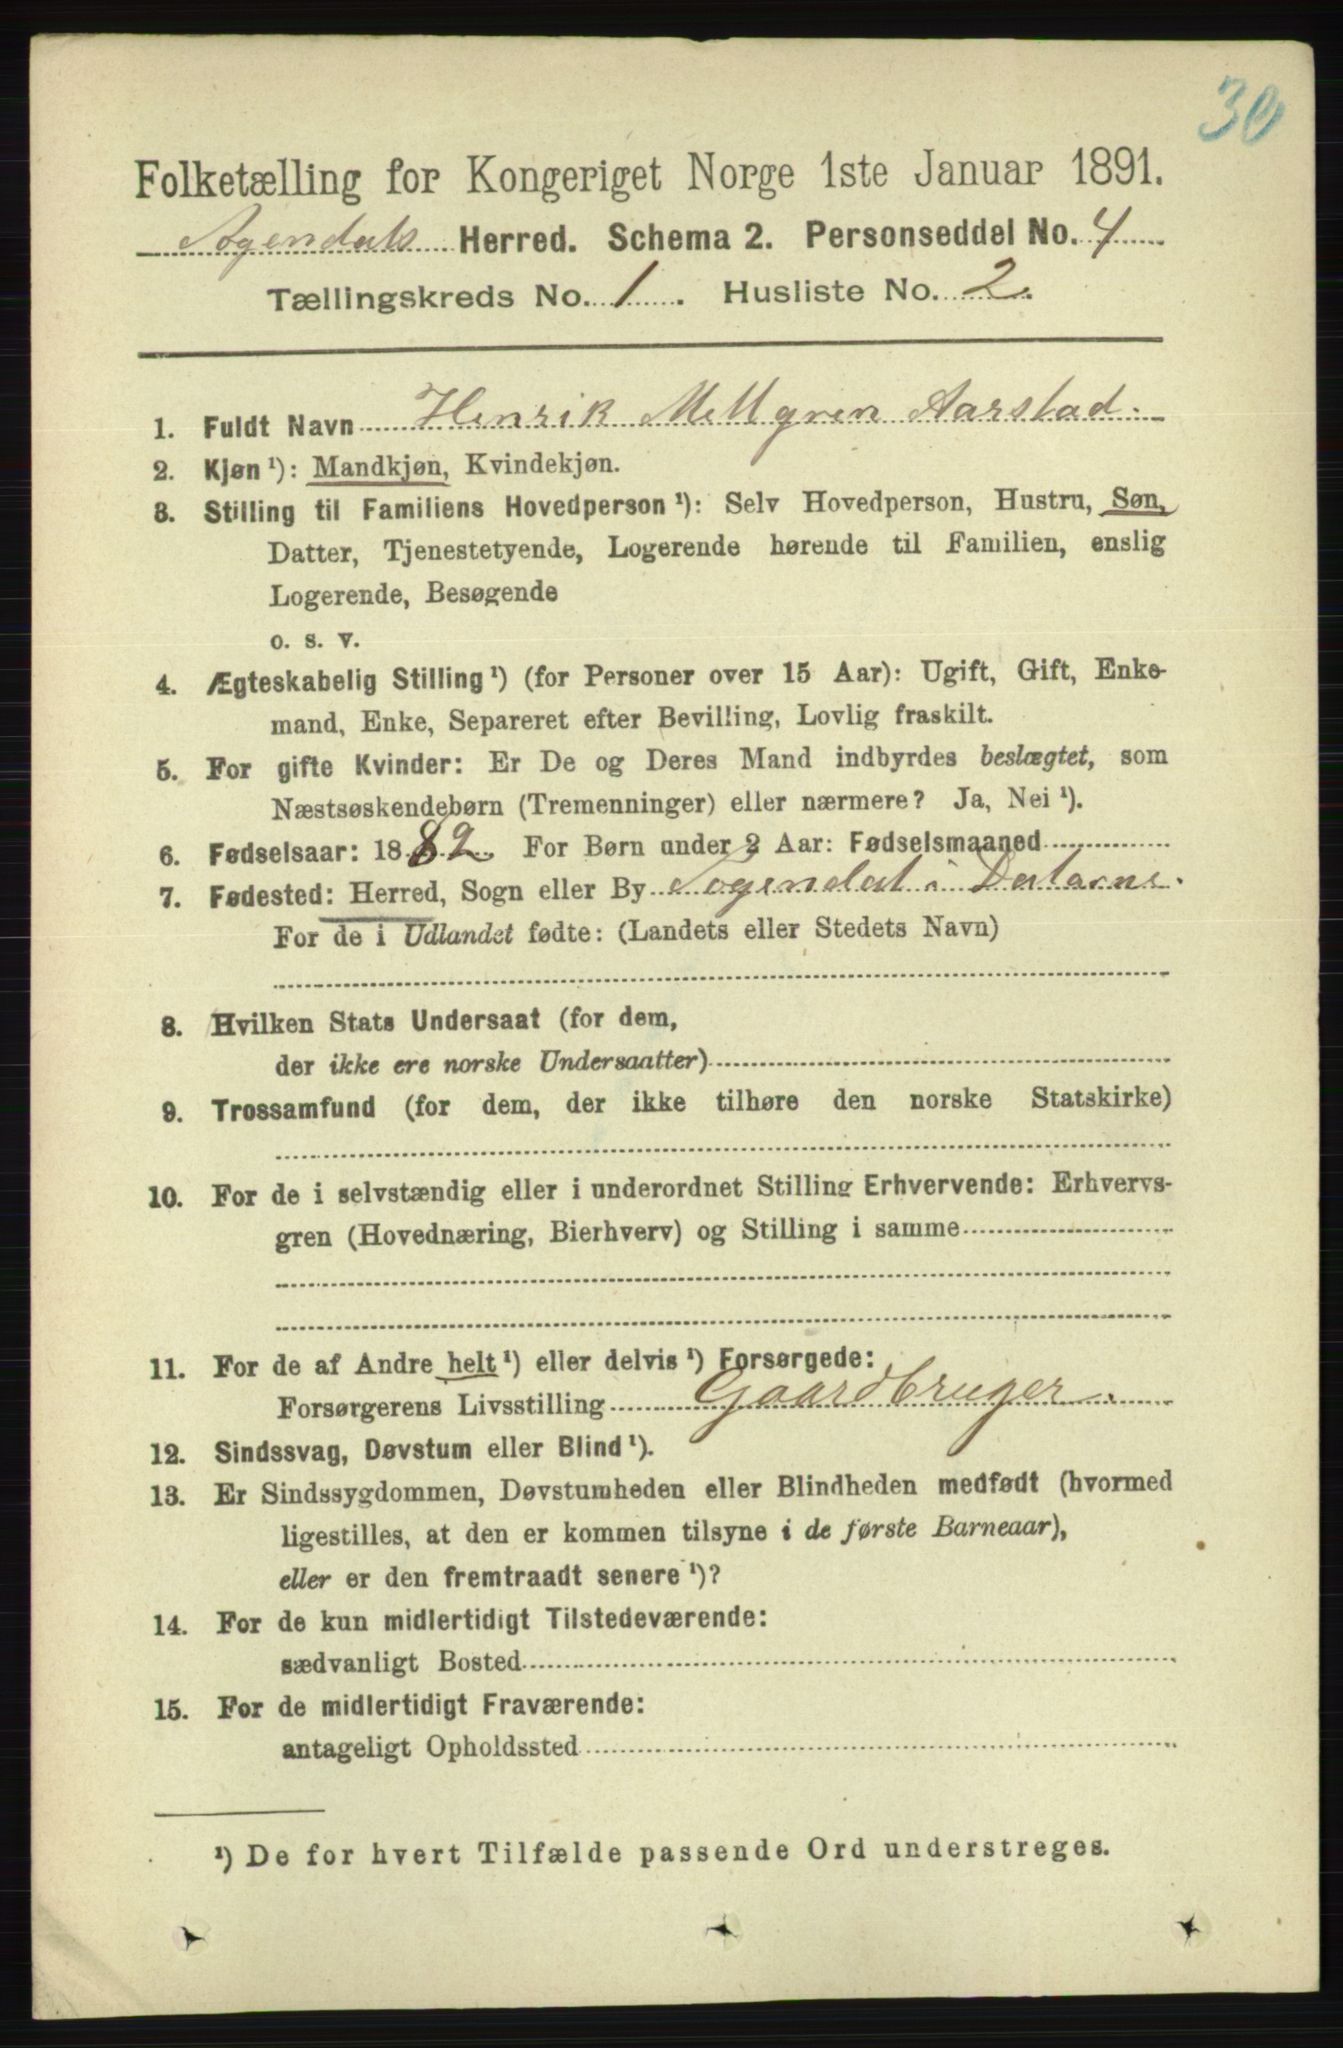 30
Folketælling for Kongeriget Norge 1ste Januar 1891.
Sogendals Herred. Schema 2. Personseddel No. 4
Tællingskreds No. 1. Husliste No. 2.
1. Fuldt Navn Henrik Mellgren Aarstad.
2. Kjøn ¹): Mandkjøn, Kvindekjøn.
3. Stilling til Familiens Hovedperson ¹): Selv Hovedperson, Hustru, Søn,
Datter, Tjenestetyende, Logerende hørende til Familien, enslig
Logerende, Besøgende
o. s. v.
4. Ægteskabelig Stilling ¹) (for Personer over 15 Aar): Ugift, Gift, Enke-
mand, Enke, Separeret efter Bevilling, Lovlig fraskilt.
5. For gifte Kvinder: Er De og Deres Mand indbyrdes beslægtet, som
Næstsøskendebørn (Tremenninger) eller nærmere? Ja, Nei ¹).
6. Fødselsaar: 1882. For Børn under 2 Aar: Fødselsmaaned
7. Fødested: Herred, Sogn eller By Sogendal i Dalarne.
For de i Udlandet fødte: (Landets eller Stedets Navn)
8. Hvilken Stats Undersaat (for dem,
der ikke ere norske Undersaatter)
9. Trossamfund (for dem, der ikke tilhøre den norske Statskirke)
10. For de i selvstændig eller i underordnet Stilling Erhvervende: Erhvervs-
gren (Hovednæring, Bierhverv) og Stilling i samme
11. For de af Andre helt ¹) eller delvis ¹) Forsørgede:
Forsørgerens Livsstilling Gaardbruger.
12. Sindssvag, Døvstum eller Blind ¹).
13. Er Sindssygdommen, Døvstumheden eller Blindheden medfødt (hvormed
ligestilles, at den er kommen tilsyne i de første Barneaar),
eller er den fremtraadt senere ¹)?
14. For de kun midlertidigt Tilstedeværende:
sædvanligt Bosted
15. For de midlertidigt Fraværende:
antageligt Opholdssted
¹) De for hvert Tilfælde passende Ord understreges.